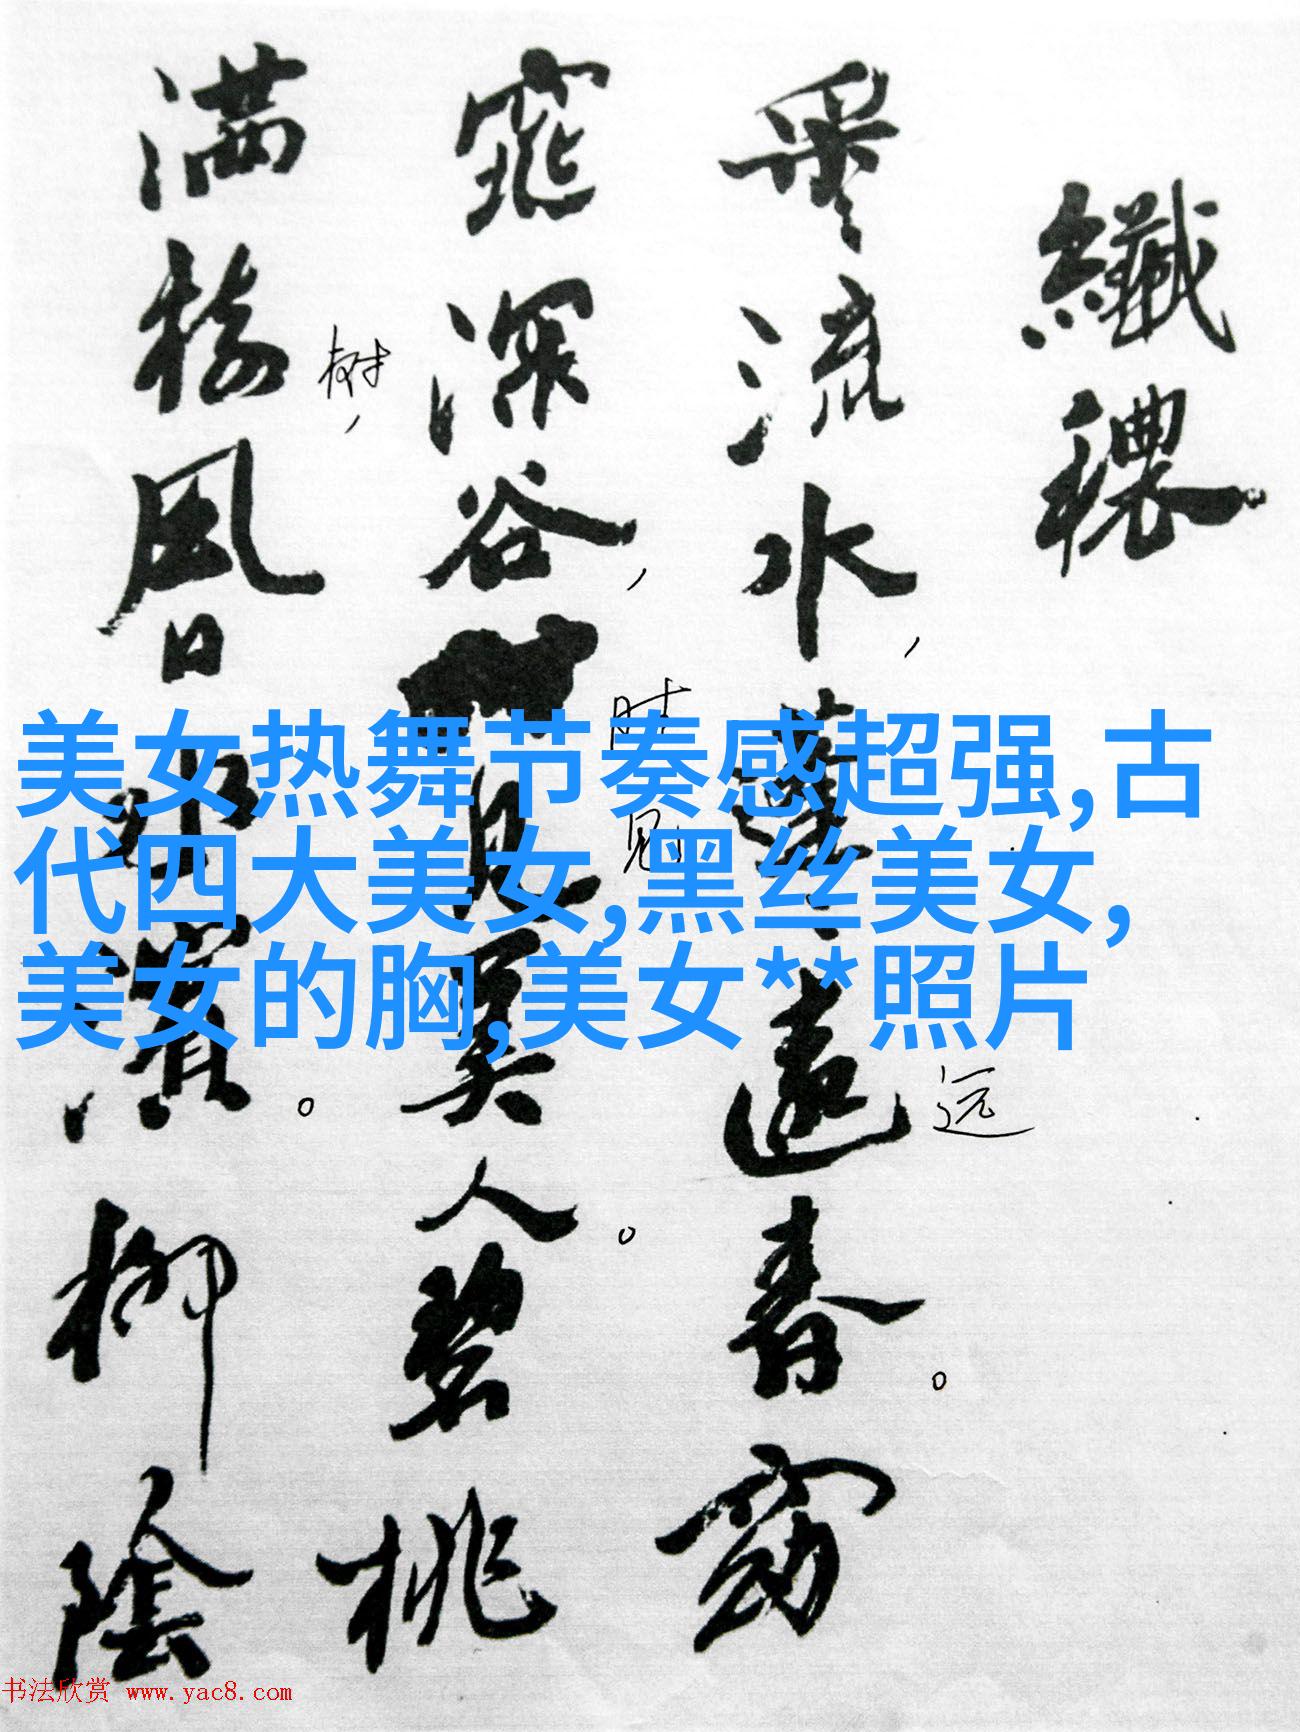 纖穠
采〻流水，蓬〻遠春。窈
窕深谷，見美人。碧桃
滿樹，風日水濱。柳陰
远
时见
树
美女热舞节奏感超强,古
代四大美女,黑丝美女,
美女的胸,美女**照片
书法欣赏 www.yac8.com